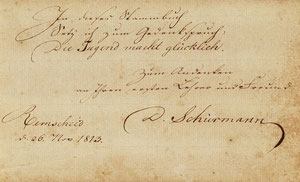 In dieses Stammbuch
Setz ich zum Gedenkspruch:
Die Tugend macht glücklich.
Zum Andenken
an Ihren ersten Lehrer und Freund
Remscheid
d. 26. Nov. 1813.
D. Schürmann